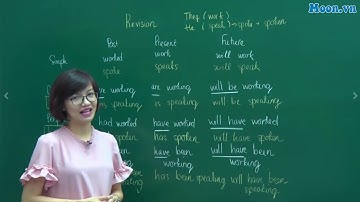 Moon.vn
Revision
They (work)
He (speak) → spoke → spoken
Past Present Future
Simple worked work will work
spoke speaks will speak
working are working will be working
speaking is speaking will be speaking
had worked have worked will have worked
spoken has spoken will have spoken
been have been will have been
working working working
has been speaking will have been
speaking